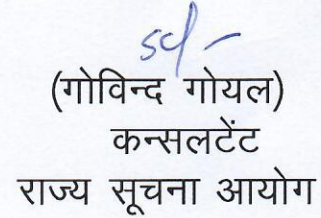 sd/-
(गोविन्द गोयल)
कन्सलटेंट
राज्य सूचना आयोग